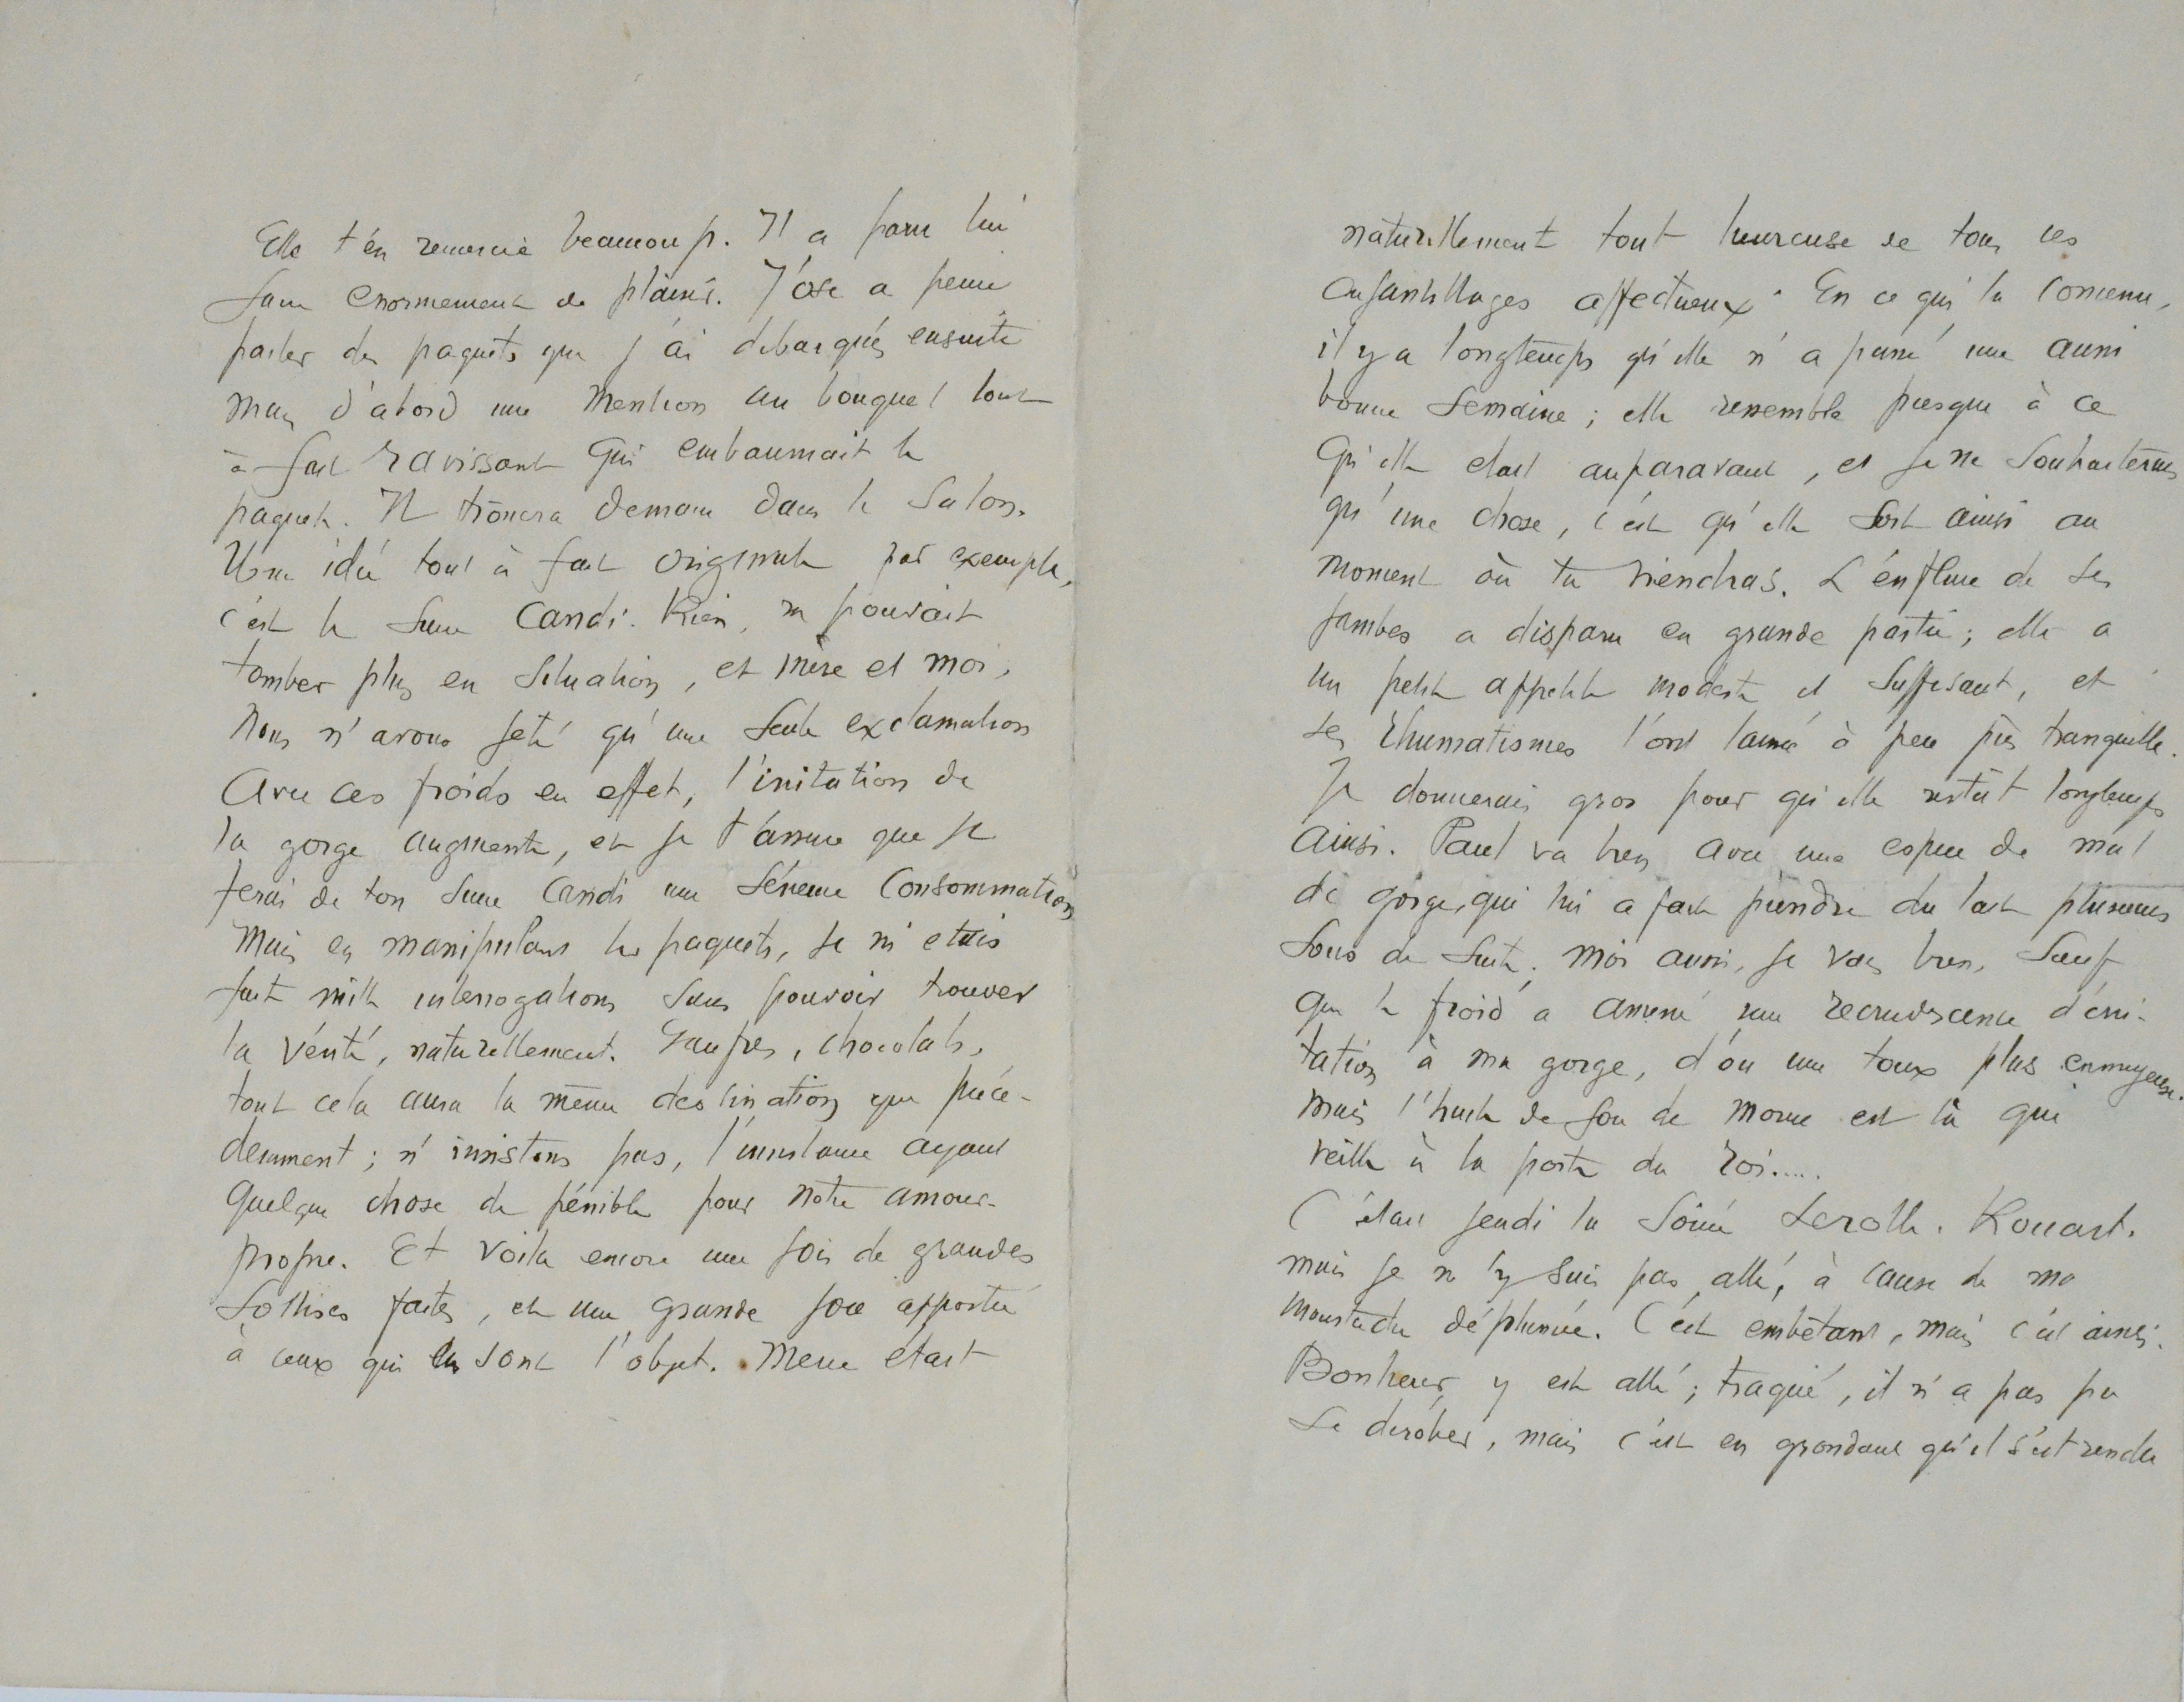 Elle t'en remercie beaucoup. Il a paru lui
faire enormement de plaisir. J'ose a peine
parler des paquets que j'ai debarqués ensuite
mais d'abord une mention au bouquet tout
à fait ravissant qui embaumait le
paquet. Il trônera demain dans le salon.
Une idée tout à fait originale par exemple,
c'est le sucre candi. Rien, ne pouvait
tomber plus en situation, et mère et moi,
nous n'avons jeté qu'une seule exclamation
Avec ces froids en effet, l'irritation de
la gorge augmente, et je t'assure que je
ferai de ton sucre candi une sérieuse consommation
Mais en manipulant les paquets, je m'etais
fait mille interrogations sans pouvoir trouver
la vérité, naturellement. Gaufres, chocolats,
tout cela aura la même destination que précé-
demment; n'insistons pas, l'insistance ayant
quelque chose de pénible pour notre amour-
propre. Et voila encore une fois de grandes
sottises faites, et une grande joie apportée
à ceux qui en sont l'objet. Mère était
naturellement tout heureuse de tous ces
enfantillages affectueux. En ce qui la concerne,
il y a longtemps qu'elle n'a passé une aussi
bonne semaine; elle ressemble presque à ce
qu'elle etait auparavant, et je ne souhaiterais
qu'une chose, c'est qu'elle soit ainsi au
moment où tu viendras. L'enflure de ses
jambes a disparu en grande partie; elle a
un petit appetit modeste et suffisant, et
ses rhumatismes l'ont laissée à peu près tranquille.
Je donnerais gros pour qu'elle restât longtemps
ainsi. Paul va bien avec une espece de mal
de gorge, qui lui a fait prendre du lait plusieurs
soirs de suite. Moi aussi, je vais bien, sauf
que le froid a amené une recrudescence d'irri-
tation à ma gorge, d'où une toux plus ennuyeuse.
Mais l'huile de foie de morue est là qui
veille à la porte du roi.....
C'était jeudi la soirée Lerolle. Rouart.
mais je n'y suis pas allé, à cause de ma
moustache déplumée. C'est embêtant, mais c'est ainsi.
Bonheur y est allé; traqué, il n'a pas pu
se dérober, mais c'est en grondant qu'il s'est rendu